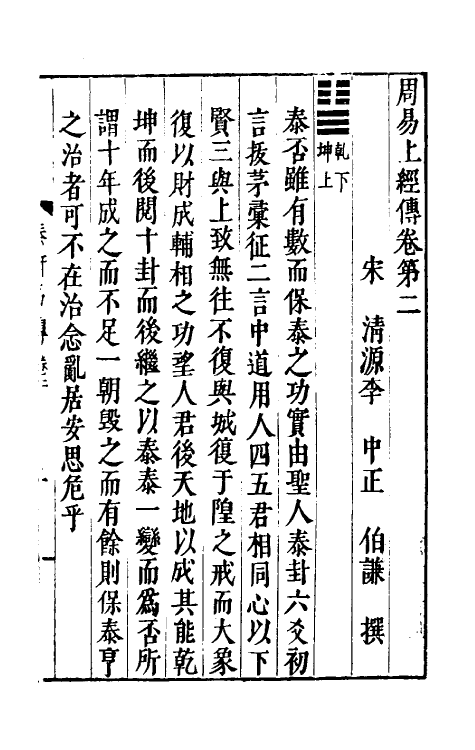 周易上經傳卷第二
宋　清源李　中正　伯謙　撰
䷊乾下坤上
泰否雖有數而保泰之功實由聖人泰封六爻初
言拔茅彙征二言中道用人四五君相同心以下
賢三與上致無往不復與城復于隍之戒而大象
復以財成輔相之功望人君後天地以成其能乾
坤而後閱十封而後繼之以泰泰一變而爲否所
謂十年成之而不足一朝毀之而有餘則保泰亨
之治者可不在治念亂居安思危乎